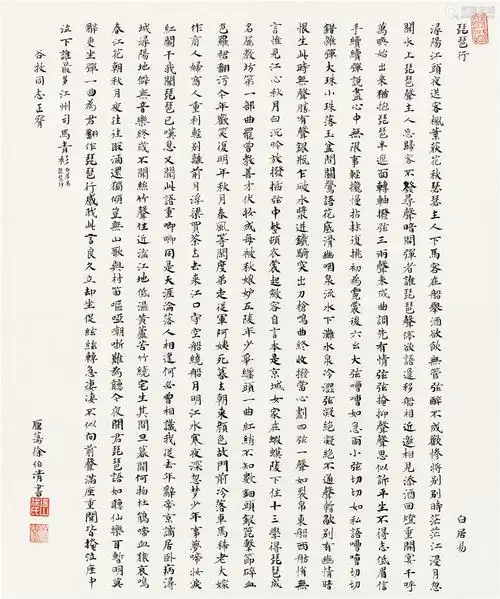 琵琶行
白居易
潯陽江頭夜送客楓葉荻花秋瑟瑟主人下馬客在船舉酒欲飲無管弦醉不成歡慘將別別時茫茫江浸月忽
聞水上琵琶聲主人忘歸客不發尋聲暗問彈者誰琵琶聲停欲語遲移船相近邀相見添酒回燈重開宴千呼
萬喚始出來猶抱琵琶半遮面轉軸撥弦三兩聲未成曲調先有情弦弦掩抑聲聲思似訴平生不得志低眉信
手續續彈說盡心中無限事輕攏慢撚抹復挑初為霓裳後六幺大弦嘈嘈如急雨小弦切切如私語嘈嘈切切
錯雜彈大珠小珠落玉盤間關鶯語花底滑幽咽泉流水下灘水泉冷澀弦凝絕凝絕不通聲暫歇別有幽情暗
恨生此時無聲勝有聲銀瓶乍破水漿迸鐵騎突出刀槍鳴曲終收撥當心劃四弦一聲如裂帛東船西舫悄無
言惟見江心秋月白沉吟放撥插弦中整頓衣裳起斂容自言本是京城女家在蝦蟆陵下住十三學得琵琶成
名屬教坊第一部曲罷曾教善才伏妝成每被秋娘妒五陵年少爭纏頭一曲紅綃不知數鈿頭銀篦擊節碎血
色羅裙翻污今年歡笑復明年秋月春風等閒度弟走從軍阿姨死暮去朝來顏色故門前冷落車馬稀老大嫁
作商人婦商人重利輕別離前月浮梁買茶去去來江口守空船繞船月明江水寒夜深忽夢少年事夢啼妝淚
紅闌干我聞琵琶已嘆息又聞此語重唧唧同是天涯淪落人相逢何必曾相識我從去年辭帝京謫居臥病潯
城潯陽地僻無音樂終歲不聞絲竹聲住近湓江地低濕黃蘆苦竹繞宅生其間旦暮聞何物杜鵑啼血猿哀鳴
春江花朝秋月夜往往取酒還獨傾豈無山歌與村笛嘔啞嘲哳難為聽今夜聞君琵琶語如聽仙樂耳暫明莫
辭更坐彈一曲為君翻作琵琶行感我此言良久立卻坐促弦弦轉急淒淒不似向前聲滿座重聞皆掩泣座中
泣下誰最多江州司馬青衫
谷牧同志正
雁蕩徐伯清書